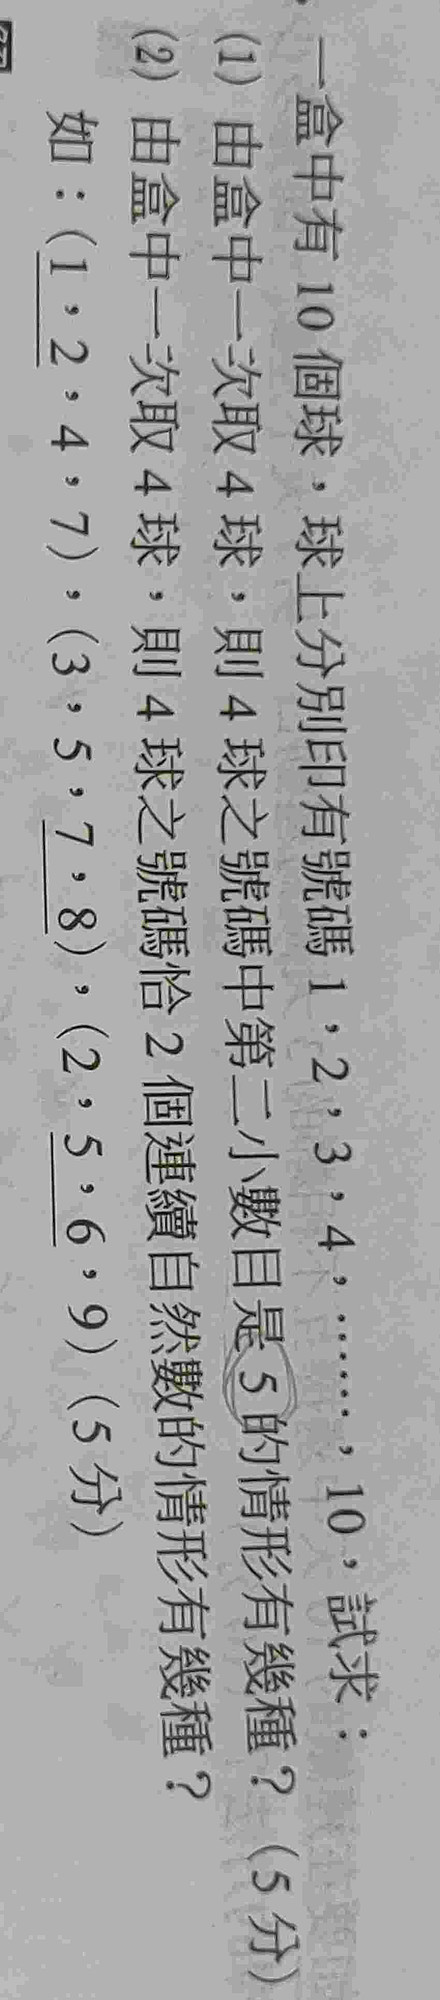 一盒中有 10 個球，球上分別印有號碼 1，2，3，4，……，10，試求：
(1) 由盒中一次取 4 球，則 4 球之號碼中第二小數目是 5 的情形有幾種？（5 分）
(2) 由盒中一次取 4 球，則 4 球之號碼恰 2 個連續自然數的情形有幾種？
如：(1，2，4，7)，(3，5，7，8)，(2，5，6，9)（5 分）